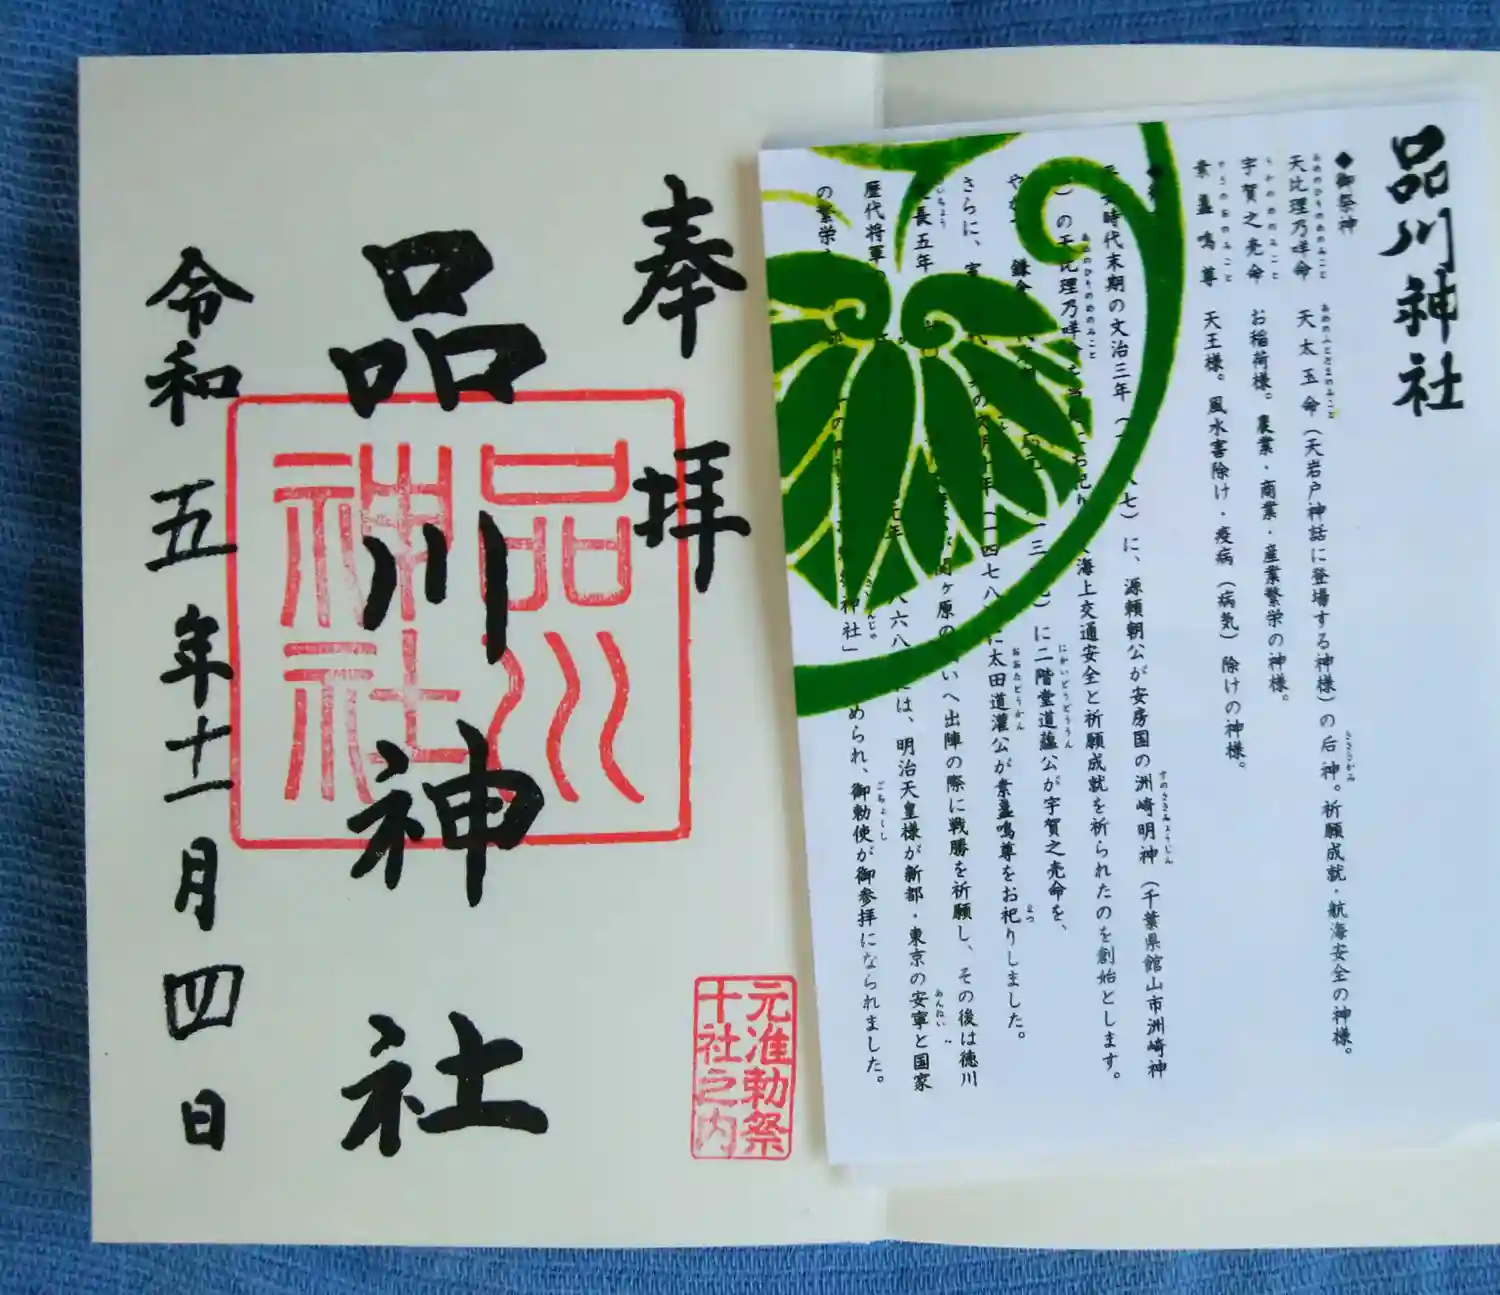 奉拝
品川神社
令和五年十一月四日
品川
神社
元准勅祭
十社之内
品川神社
◆御祭神
天比理乃咩命 天太玉命（天岩戸神話に登場する神様）の后神。祈願成就・航海安全の神様。
宇賀之売命 お稲荷様。農業・商業・産業繁栄の神様。
素盞嗚尊 天王様。風水害除け・疫病（病気）除けの神様。
時代末期の文治三年（ 七）に、源頼朝公が安房国の洲崎明神（千葉県館山市洲崎神
）の天比理乃咩命を 海上交通安全と祈願成就を祈られたのを創始とします。
やが 鎌倉 に二階堂道蘊公が宇賀之売命を、
さらに、室 年（一四七八 に太田道灌公が素盞嗚尊をお祀りしました。
長五年 関ヶ原の いへ出陣の際に戦勝を祈願し、その後は徳川
歴代将軍 元年 八六八 は、明治天皇様が新都・東京の安寧と国家
の繁栄 神社」 められ、御勅使が御参拝になられました。